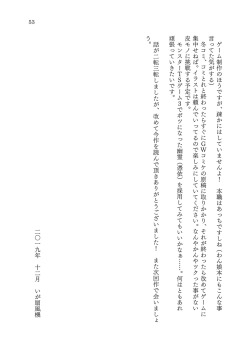 ゲーム制作のほうですが、疎かにはしていませんよ！　本職はあっちですしね（わん娘本にもこんな事
言ってた気がする）
冬コミ、コミとれと終わったらすぐにＧＷコミケの原稿に取りかかり、それが終わったら改めてゲームに
集中せねば。イラストは頼んでいってるので楽しみにしていてください。なんやかんやックった事がない
皮モノに挑戦する予定です。
モンスターＴＳゲーム３でボツになった幽霊（憑依）を採用してみてもいいかなぁ……。何はともあれ
頑張っていきたいです。
話が二転三転しましたが、改めて今作を読んで頂きありがとうございました！　また次回作で会いましょ
う。
二〇一九年　十二月　いが扇風機
53